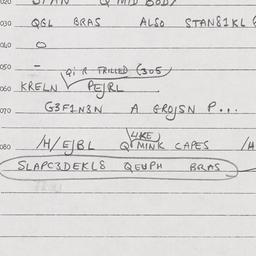 020 Q MID BODY
030 QGL BRAS ALSO STAN81KL
040 O
050 –
Qi R FRILLED (305)
060 KRELN PEJRL
070 G3F1N3N A GROJSN P...
LIKE
080 /H/EJBL Q MINK CAPES /H
SLAPC3DEKL8 QEUPH BRAS